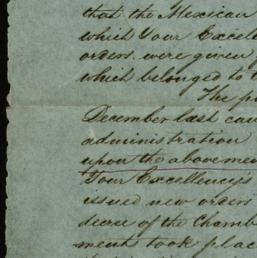 that the Mexican
which Your Excele
orders were given
which belonged to
The p
December last cau
administration
upon the abovemen
Your Excellency's
issued new orders
decree of the Chamb
ments took place